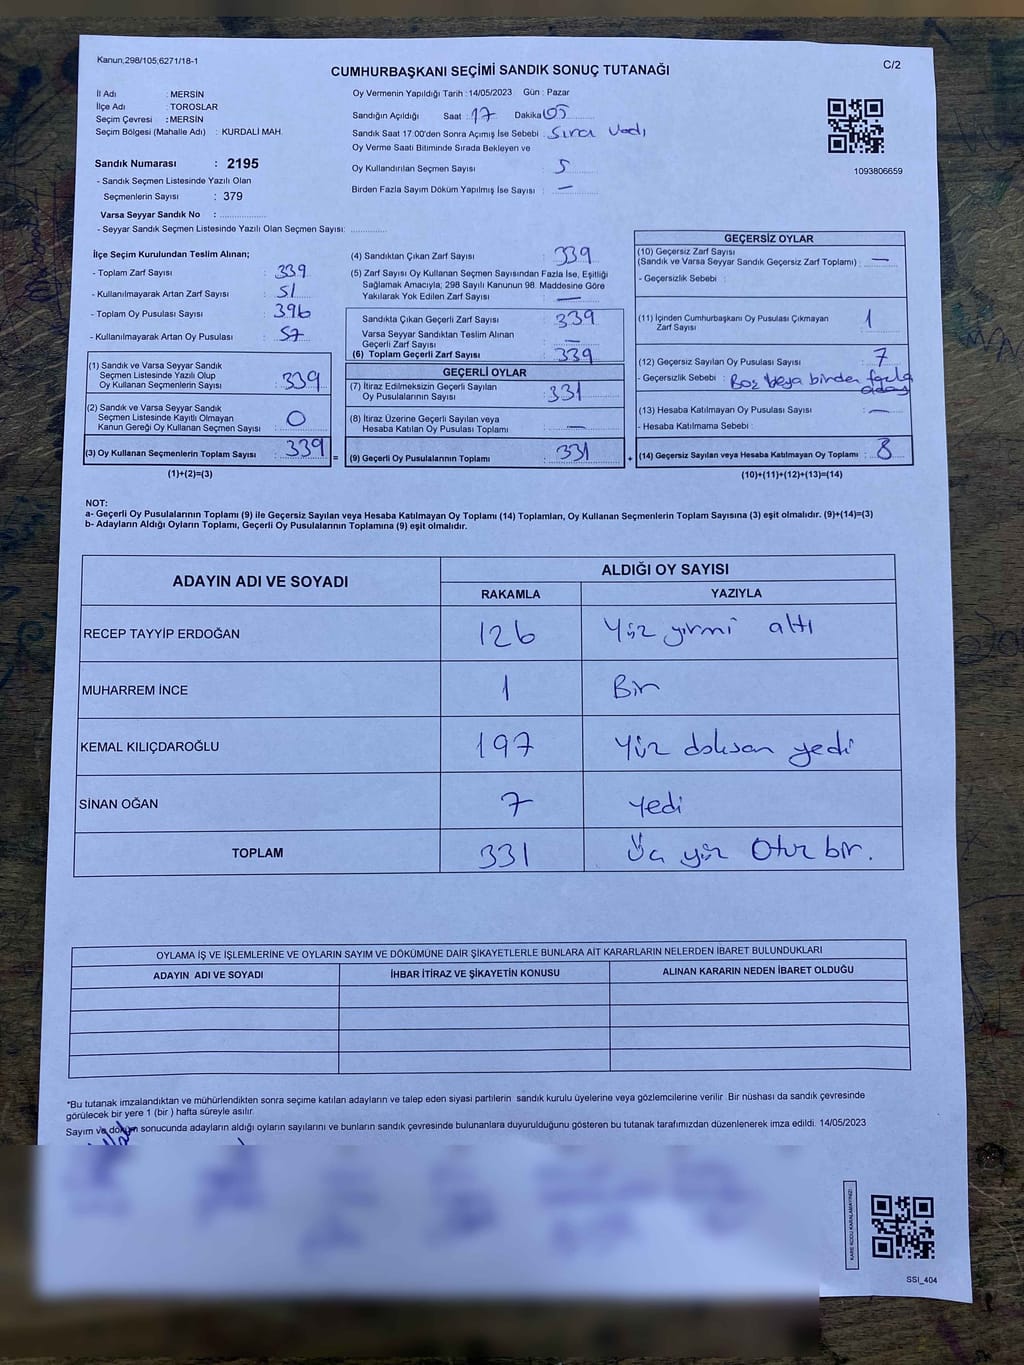 Kanun,298/105,6271/18-1
CUMHURBAŞKANI SEÇİMİ SANDIK SONUÇ TUTANAĞI
C/2
İl Adı : MERSİN
İlçe Adı : TOROSLAR
Seçim Çevresi : MERSİN
Seçim Bölgesi (Mahalle Adı) : KURDALİ MAH.
Sandık Numarası : 2195
- Sandık Seçmen Listesinde Yazılı Olan
Seçmenlerin Sayısı : 379
Varsa Seyyar Sandık No :
- Seyyar Sandık Seçmen Listesinde Yazılı Olan Seçmen Sayısı:
Oy Vermenin Yapıldığı Tarih : 14/05/2023 Gün : Pazar
Sandığın Açıldığı Saat : 17 Dakika 05
Sandık Saat 17:00'den Sonra Açımış İse Sebebi : Sıra Vadı
Oy Verme Saati Bitiminde Sırada Bekleyen ve
Oy Kullandırılan Seçmen Sayısı : 5
Birden Fazla Sayım Döküm Yapılmış İse Sayısı : —
1093806659
İlçe Seçim Kurulundan Teslim Alınan;
- Toplam Zarf Sayısı : 339
- Kullanılmayarak Artan Zarf Sayısı : 51
- Toplam Oy Pusulası Sayısı : 396
- Kullanılmayarak Artan Oy Pusulası : 57
(1) Sandık ve Varsa Seyyar Sandık
Seçmen Listesinde Yazılı Olup
Oy Kullanan Seçmenlerin Sayısı : 339
(2) Sandık ve Varsa Seyyar Sandık
Seçmen Listesinde Kayıtlı Olmayan
Kanun Gereği Oy Kullanan Seçmen Sayısı : 0
(3) Oy Kullanan Seçmenlerin Toplam Sayısı : 339 =
(1)+(2)=(3)
(4) Sandıktan Çıkan Zarf Sayısı : 339
(5) Zarf Sayısı Oy Kullanan Seçmen Sayısından Fazla İse, Eşitliği
Sağlamak Amacıyla; 298 Sayılı Kanunun 98. Maddesine Göre
Yakılarak Yok Edilen Zarf Sayısı : —
Sandıkta Çıkan Geçerli Zarf Sayısı : 339
Varsa Seyyar Sandıktan Teslim Alınan
Geçerli Zarf Sayısı : —
(6) Toplam Geçerli Zarf Sayısı : 339
GEÇERLİ OYLAR
(7) İtiraz Edilmeksizin Geçerli Sayılan
Oy Pusulalarının Sayısı : 331
(8) İtiraz Üzerine Geçerli Sayılan veya
Hesaba Katılan Oy Pusulası Toplamı : —
(9) Geçerli Oy Pusulalarının Toplamı : 331 +
GEÇERSİZ OYLAR
(10) Geçersiz Zarf Sayısı
(Sandık ve Varsa Seyyar Sandık Geçersiz Zarf Toplamı) : —
- Geçersizlik Sebebi :
(11) İçinden Cumhurbaşkanı Oy Pusulası Çıkmayan
Zarf Sayısı : 1
(12) Geçersiz Sayılan Oy Pusulası Sayısı : 7
- Geçersizlik Sebebi : Boş veya birden fazla
aday
(13) Hesaba Katılmayan Oy Pusulası Sayısı : —
- Hesaba Katılmama Sebebi :
(14) Geçersiz Sayılan veya Hesaba Katılmayan Oy Toplamı : 8
(10)+(11)+(12)+(13)=(14)
NOT:
a- Geçerli Oy Pusulalarının Toplamı (9) ile Geçersiz Sayılan veya Hesaba Katılmayan Oy Toplamı (14) Toplamları, Oy Kullanan Seçmenlerin Toplam Sayısına (3) eşit olmalıdır. (9)+(14)=(3)
b- Adayların Aldığı Oyların Toplamı, Geçerli Oy Pusulalarının Toplamına (9) eşit olmalıdır.
ADAYIN ADI VE SOYADI
ALDIĞI OY SAYISI
RAKAMLA YAZIYLA
RECEP TAYYİP ERDOĞAN 126 Yüz yirmi altı
MUHARREM İNCE 1 Bir
KEMAL KILIÇDAROĞLU 197 Yüz doksan yedi
SİNAN OĞAN 7 Yedi
TOPLAM 331 Üç yüz Otuz bir.
OYLAMA İŞ VE İŞLEMLERİNE VE OYLARIN SAYIM VE DÖKÜMÜNE DAİR ŞİKAYETLERLE BUNLARA AİT KARARLARIN NELERDEN İBARET BULUNDUKLARI
ADAYIN ADI VE SOYADI İHBAR İTİRAZ VE ŞİKAYETİN KONUSU ALINAN KARARIN NEDEN İBARET OLDUĞU
*Bu tutanak imzalandıktan ve mühürlendikten sonra seçime katılan adayların ve talep eden siyasi partilerin sandık kurulu üyelerine veya gözlemcilerine verilir. Bir nüshası da sandık çevresinde
görülecek bir yere 1 (bir ) hafta süreyle asılır.
Sayım ve döküm sonucunda adayların aldığı oyların sayılarını ve bunların sandık çevresinde bulunanlara duyurulduğunu gösteren bu tutanak tarafımızdan düzenlenerek imza edildi. 14/05/2023
KARE KODU KARALAMAYINIZ!
SSI_404